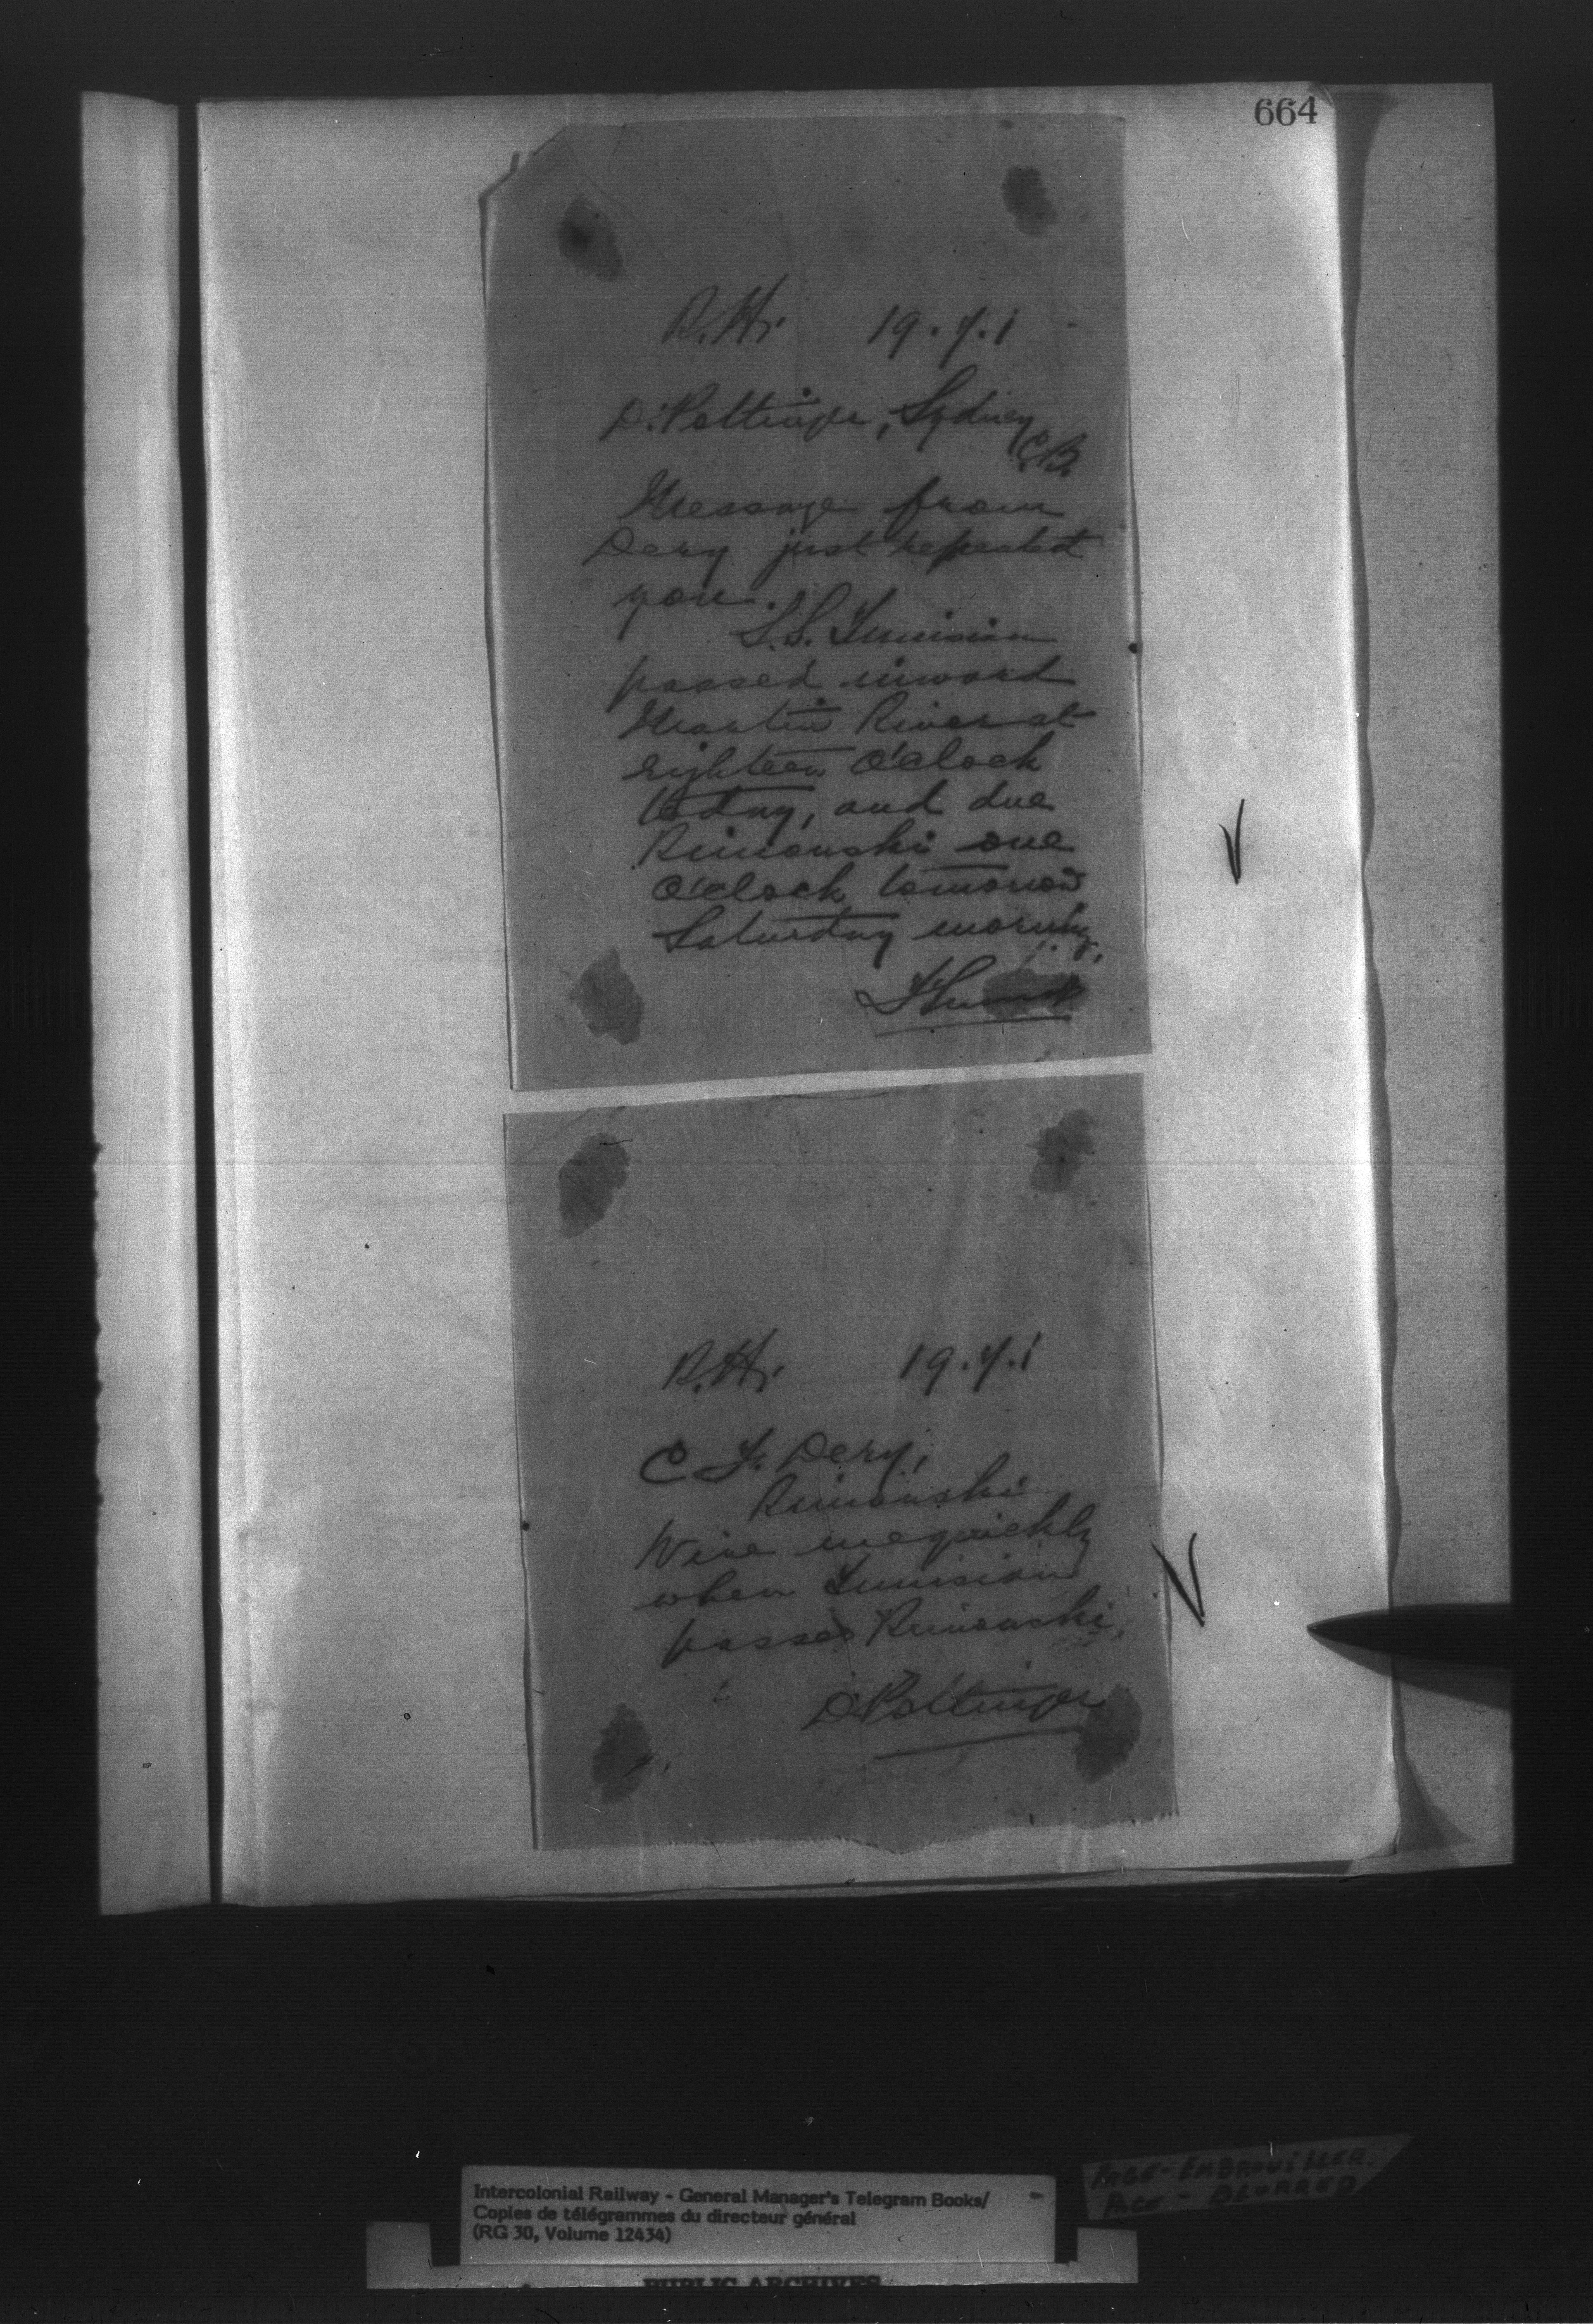 664
R.H. 19.7.1
D. Pottinger, Sydney
C.B.
Message from
Dery just repeated
you.
S.S. Tunisian
passed inward
Martin River at
eighteen O'clock
today, and due
Rimouski one
O'clock tomorrow
Saturday morning.
R.H. 19.7.1
C F. Dery,
Rimouski
Wire me quickly
when Tunisian
passes Rimouski.
D Pottinger
Intercolonial Railway - General Manager's Telegram Books/
Copies de télégrammes du directeur général
(RG 30, Volume 12434)
PUBLIC ARCHIVES
PAGE - EMBROUILLER.
PAGE - BLURRED